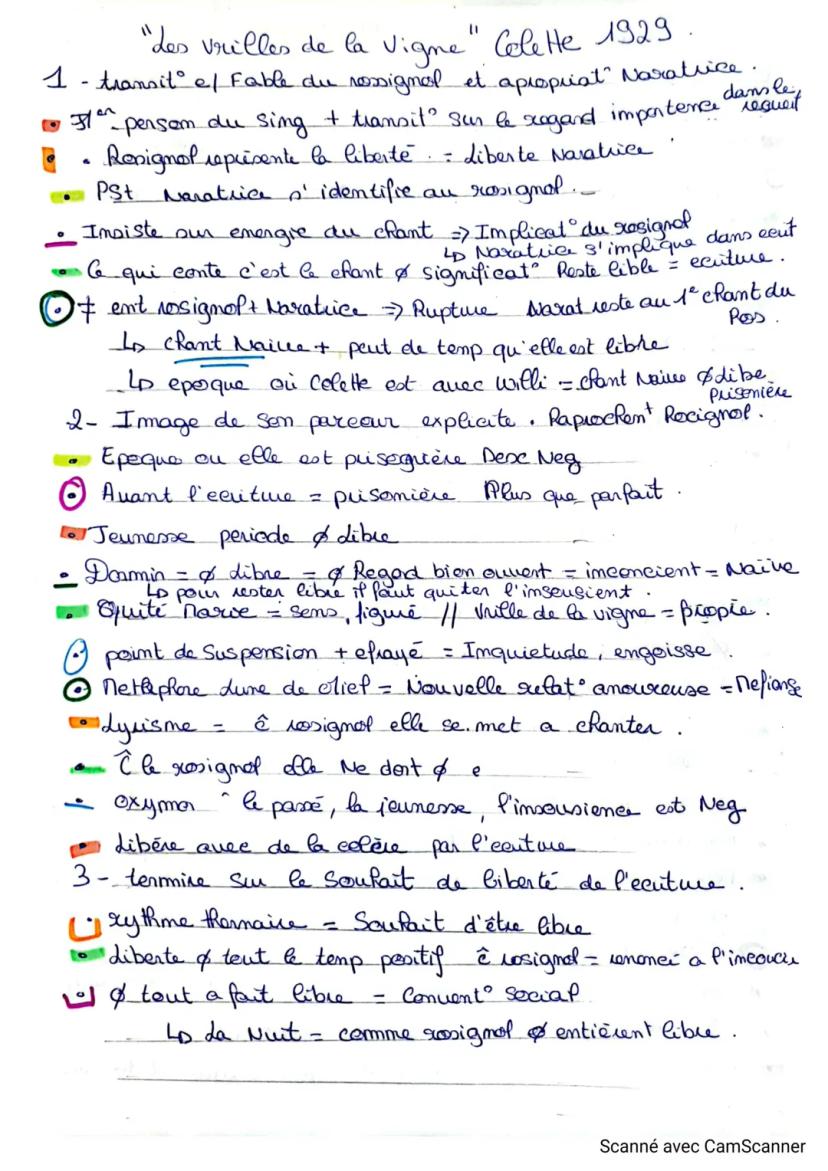 "Les vrilles de la vigne" Colette 1929.
1 - transit° e/ Fable du rossignol et apropriat° Naratrice.
1er person du Sing + transit° sur le regard importence dans le recueil
• Rosignol représente la liberté. = liberte Naratrice
• PSt Naratrice s'identifie au rosignol.
• Insiste sur energie du chant => Implicat° du rosignol
↳ Naratrice s'implique dans ecrit
• Ce qui conte c'est le chant ø significat° Reste lible = ecriture.
• ≠ ent rosignol + Naratrice => Rupture Narat reste au 1e chant du Ros.
↳ chant Naive + peut de temp qu'elle est libre
↳ epoque où Colette est avec Willi = chant Naive ø libe prisonière
2- Image de son parcour explicite. Raprochent Rocignol.
• Epoque ou elle est priseguière Desc Neg
• Avant l'ecriture = prisonière Plus que parfait.
• Jeunesse periode ø libre
• Dormin = ø libre = ø Regard bien ouvert = inconcient = Naïve
↳ pour rester libre il faut quiter l'insousient.
• Quité Marie = sens figuré // Vrille de la vigne =
• point de Suspension + efrayé = Inquietude, engoisse.
• Metaphore dune de clief = Nouvelle relat° amoureuse = Mefiance
• Lyrisme = ê rosignol elle se met a chanter.
• Ĉ le rosignol elle Ne dort ø e
• oxymor ^ le passé, la jeunesse, l'insousience est Neg
• Libère avec de la colère par l'ecriture
3- termine sur le Souhait de liberté de l'ecriture.
• rythme thernaire = Souhait d'être libre
• liberte ø tout le temp positif ê rosignol = renoncé a l'insoucie
• ø tout a fait libre = Convent° Social
↳ La Nuit = comme rosignol ø entièrent libre.
Scanné avec CamScanner